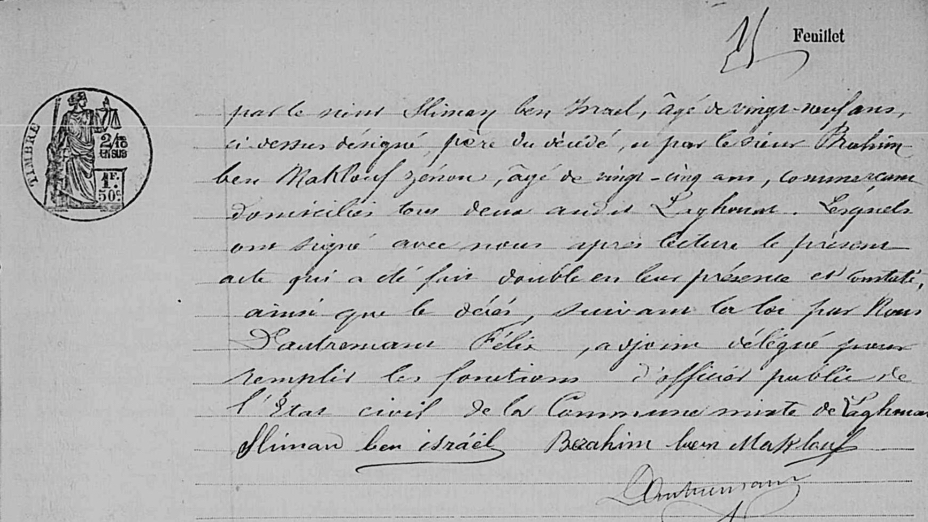 Feuillet
TIMBRE
2/10
EN SUS
1F.
50c.
par le sieur Sliman ben Israel, âgé de vingt-neuf ans,
ci-dessus désigné, père du décédé, et par le sieur Brahim
ben Maklouf Zénou, âgé de vingt-cinq ans, commerçant
domiciliés tous deux audit Laghouat. Lesquels
ont signé avec nous après lecture le présent
acte qui a été fait double en leur présence et constaté,
ainsi que le décès, suivant la loi par Nous
Dautremant Félix, adjoint délégué pour
remplir les fonctions d'officier public de
l'État civil de la Commune mixte de Laghouat
Sliman ben israël Berahim ben Maklouf
Dautremant